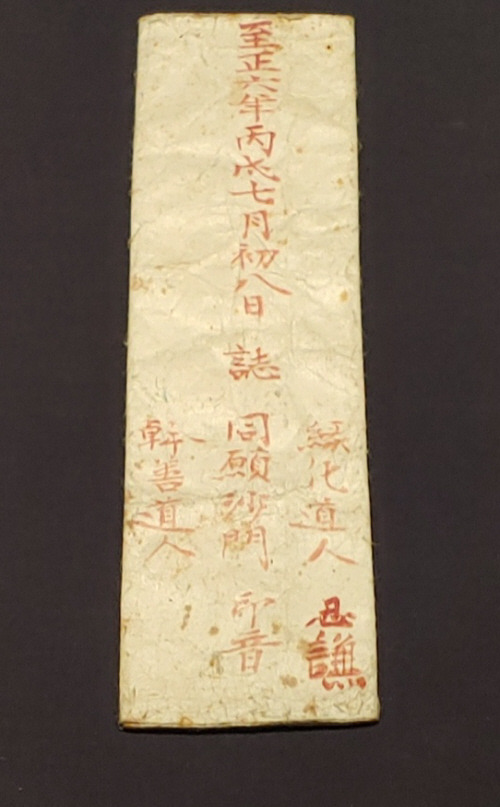 至正六年丙戌七月初八日 誌
緣化道人 謙
同願沙門 印音
幹善道人